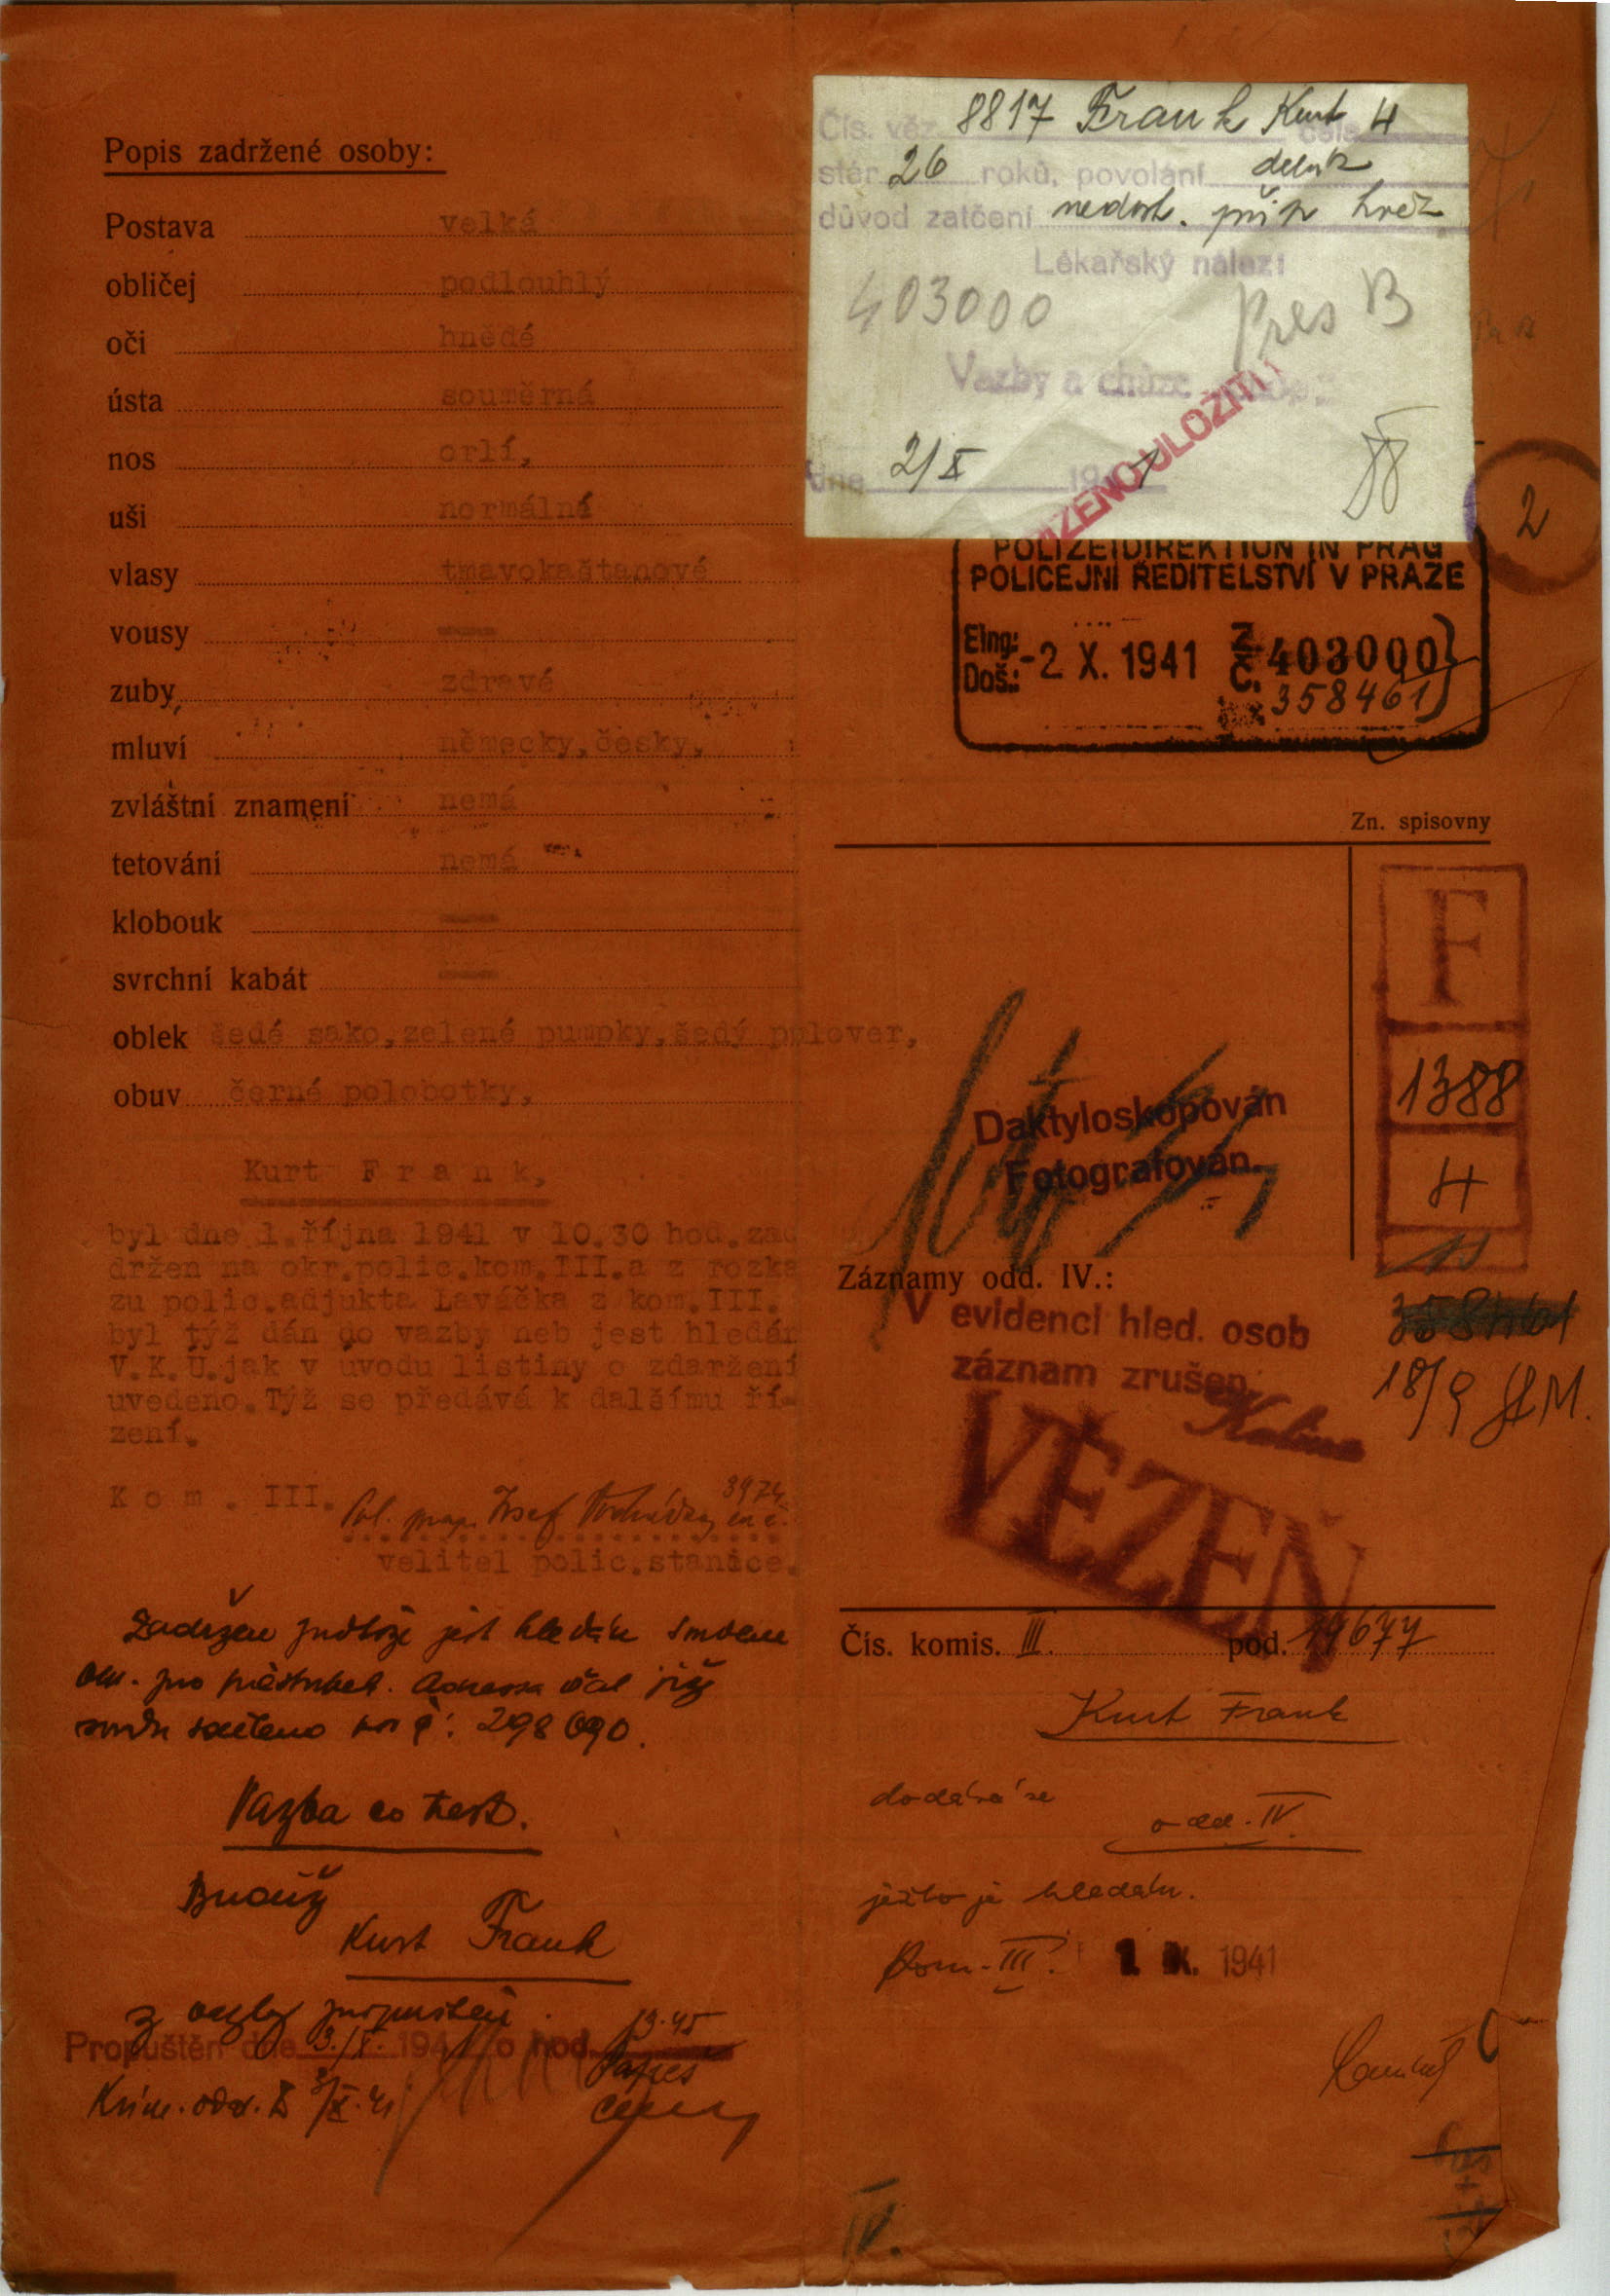 Popis zadržené osoby:
Postava velká
obličej podlouhlý
oči hnědé
ústa souměrná
nos orlí,
uši normální
vlasy tmavokaštanové
vousy
zuby, zdravé
mluví německy, česky,
zvláštní znamení nemá
tetování nemá
klobouk
svrchní kabát
oblek šedé sako, zelené pumpky, šedý polover,
obuv černé polobotky,
Kurt Frank,
byl dne 1.října 1941 v 10.30 hod. zad
držen na okr.polic.kom.III.a z rozka
zu polic.adjukta Laváčka z kom.III.
byl týž dán do vazby neb jest hledán
V.K.Ú.jak v úvodu listiny o zdaržení
uvedeno.Týž se předává k dalšímu ří-
zení.
Kom. III.
Pol. Josef 3974
velitel polic.stanice.
Zadržen jest hledán
již
298 090.
Vazba
Kurt Frank
z vazby propuštěn.
Propuštěn dne 3./X. 194 o hod. 13.45
Krim. odd. X. 41
Čís. věz. 8817 Frank Kurt cela 4
stár 26 roků, povolání dělník
důvod zatčení nedost.
Lékařský nález:
403000 Pres B
Vazby a chůze
dne 2/X 1941
ZENO ULOŽITI
2
POLIZEIDIREKTION IN PRAG
POLICEJNÍ ŘEDITELSTVÍ V PRAZE
Eing.: Doš.: -2. X. 1941 Z. Č. 403000
358461
Zn. spisovny
F
1388
4
Daktyloskopován
Fotografován.
Záznamy odd. IV.:
V evidenci hled. osob
záznam zrušen.
Kalina
358461
18/9
VĚZEŇ
Čís. komis. III. pod. 19677
Kurt Frank
dodává se
odd. IV.
ježto je hledán.
Kom. III. 1. X. 1941
IV.